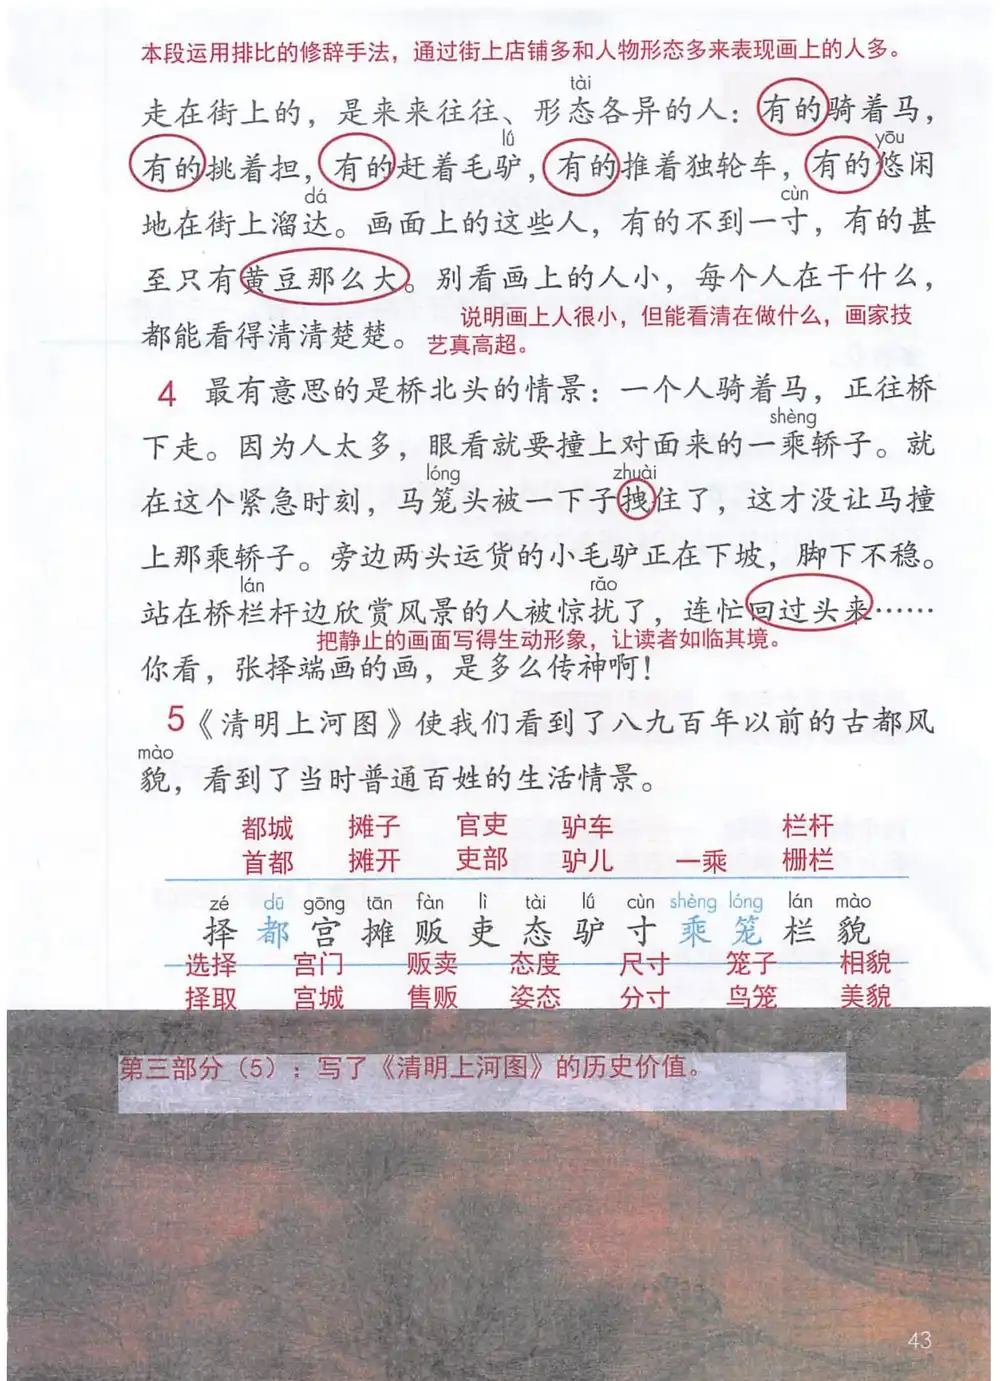 本段运用排比的修辞手法，通过街上店铺多和人物形态多来表现画上的人多。
tài
走在街上的，是来来往往、形态各异的人：有的骑着马，
lǘ yōu
有的挑着担，有的赶着毛驴，有的推着独轮车，有的悠闲
dá cùn
地在街上溜达。画面上的这些人，有的不到一寸，有的甚
至只有黄豆那么大。别看画上的人小，每个人在干什么，
都能看得清清楚楚。
说明画上人很小，但能看清在做什么，画家技
艺真高超。
4 最有意思的是桥北头的情景：一个人骑着马，正往桥
shèng
下走。因为人太多，眼看就要撞上对面来的一乘轿子。就
lóng zhuài
在这个紧急时刻，马笼头被一下子拽住了，这才没让马撞
上那乘轿子。旁边两头运货的小毛驴正在下坡，脚下不稳。
lán rǎo
站在桥栏杆边欣赏风景的人被惊扰了，连忙回过头来……
把静止的画面写得生动形象，让读者如临其境。
你看，张择端画的画，是多么传神啊！
5《清明上河图》使我们看到了八九百年以前的古都风
mào
貌，看到了当时普通百姓的生活情景。
都城 摊子 官吏 驴车 栏杆
首都 摊开 吏部 驴儿 一乘 栅栏
zé dū gōng tān fàn lì tài lǘ cùn shèng lóng lán mào
择 都 宫 摊 贩 吏 态 驴 寸 乘 笼 栏 貌
选择 宫门 贩卖 态度 尺寸 笼子 相貌
择取 宫城 售贩 姿态 分寸 鸟笼 美貌
第三部分（5）：写了《清明上河图》的历史价值。
43